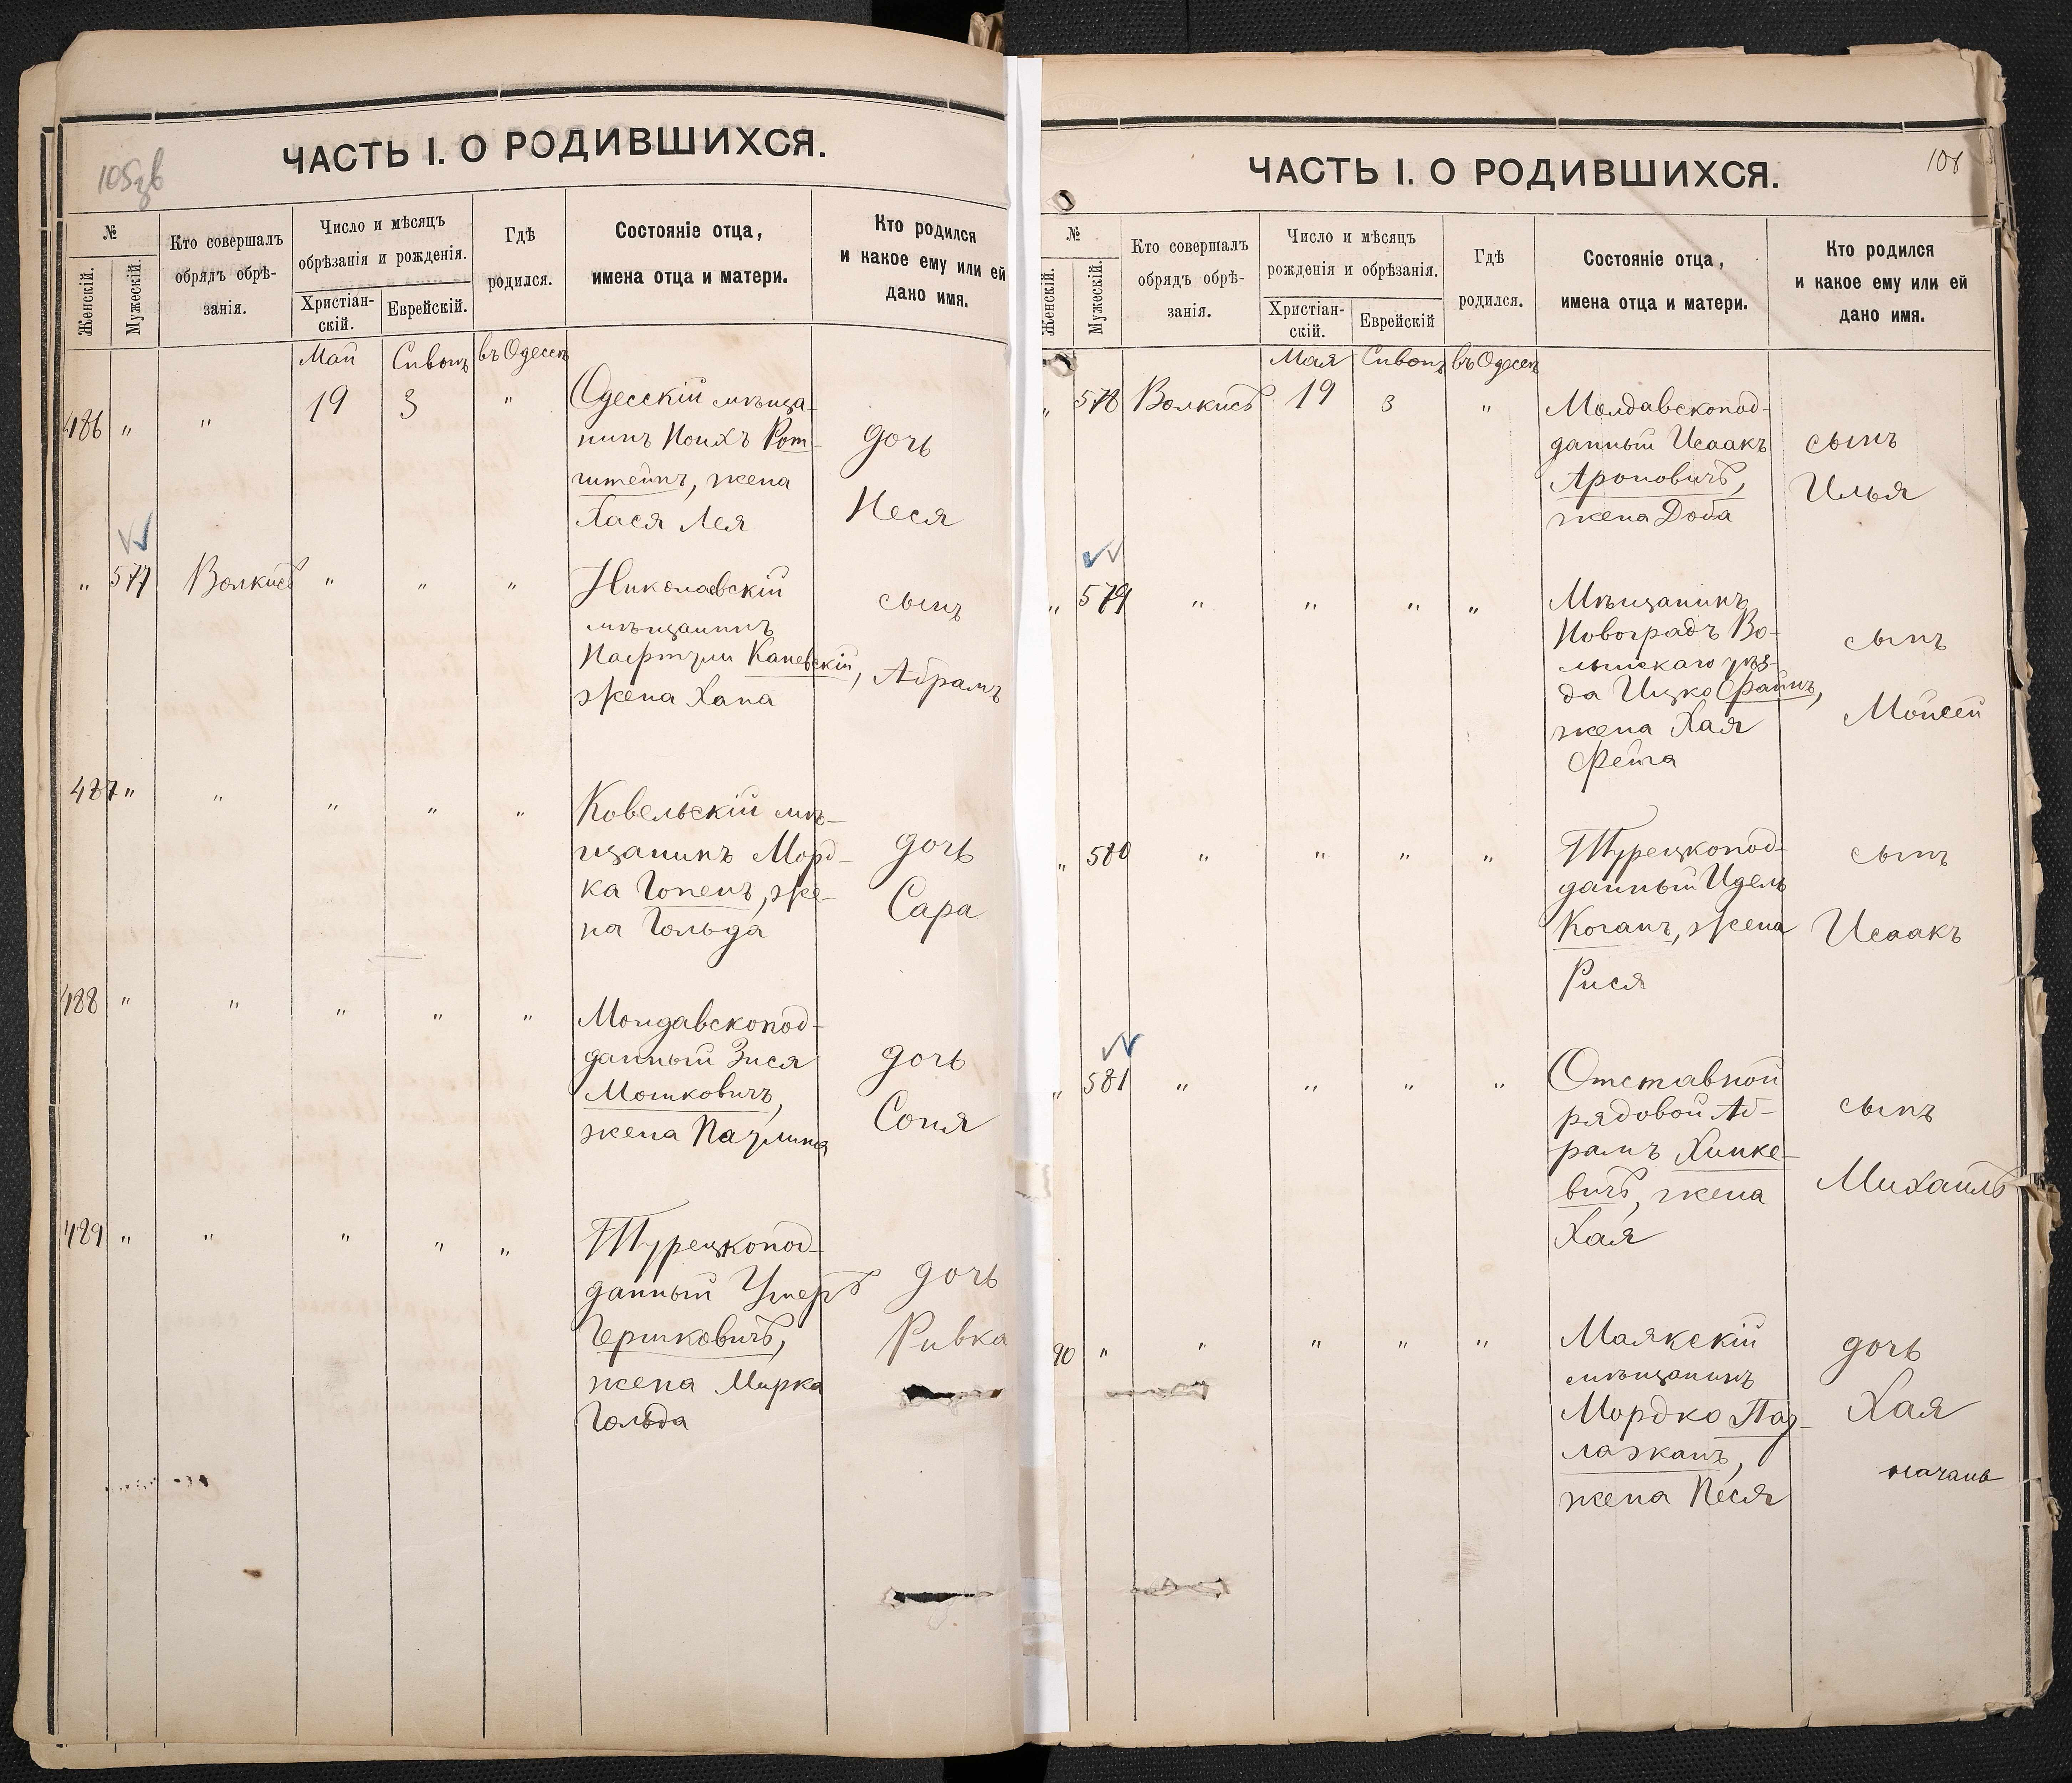 ЧАСТЬ I. О РОДИВШИХСЯ.
№
Женскій.
Мужескій.
Кто совершалъ
обрядъ обрѣ-
занія.
Число и мѣсяцъ
обрѣзанія и рожденія.
Христіан-
скій.
Еврейскій.
Гдѣ
родился.
Состояніе отца,
имена отца и матери.
Кто родился
и какое ему или ей
дано имя.
Май Сивонъ въ Одессѣ
486 " " 19 3 "
Одесскій мѣща-
нинъ Иоихъ Рот-
штейнъ, жена
Хася Лея
дочь
Неся
" 577 Волкисъ " " "
Николаевскій
мѣщанинъ
Нафтули Каневскій,
жена Хана
сынъ
Абрамъ
487 " " " " "
Ковельскій мѣ-
щанинъ Морд-
ка Гопенъ, же-
на Гольда
дочь
Сара
488 " " " " "
Молдавскопод-
данный Зися
Мошковичъ,
жена Паулина
дочь
Соня
489 " " " " "
Турецкопод-
данный Умеръ
Гершковичъ,
жена Мирка
Гольда
дочь
Ривка
ЧАСТЬ I. О РОДИВШИХСЯ.
108
№
Женскій.
Мужескій.
Кто совершалъ
обрядъ обрѣ-
занія.
Число и мѣсяцъ
рожденія и обрѣзанія.
Христіан-
скій.
Еврейскій
Гдѣ
родился.
Состояніе отца,
имена отца и матери.
Кто родился
и какое ему или ей
дано имя.
Мая Сивонъ въ Одессѣ
" 578 Волкисъ 19 3 "
Молдавскопод-
данный Исаакъ
Ароновичъ,
жена Доба
сынъ
Илья
" 579 " " " "
Мѣщанинъ
Новоградъ Во-
лынскаго уѣз-
да Ицко Файнъ,
жена Хая
Фейга
сынъ
Мойсей
" 580 " " " "
Турецкопод-
данный Идель
Коганъ, жена
Рися
сынъ
Исаакъ
" 581 " " " "
Отставной
рядовой Аб-
рамъ Хинке-
вичъ, жена
Хая
сынъ
Михаилъ
90 " " " " "
Маякскій
мѣщанинъ
Мордко Паз-
лажанъ,
жена Песя
дочь
Хая